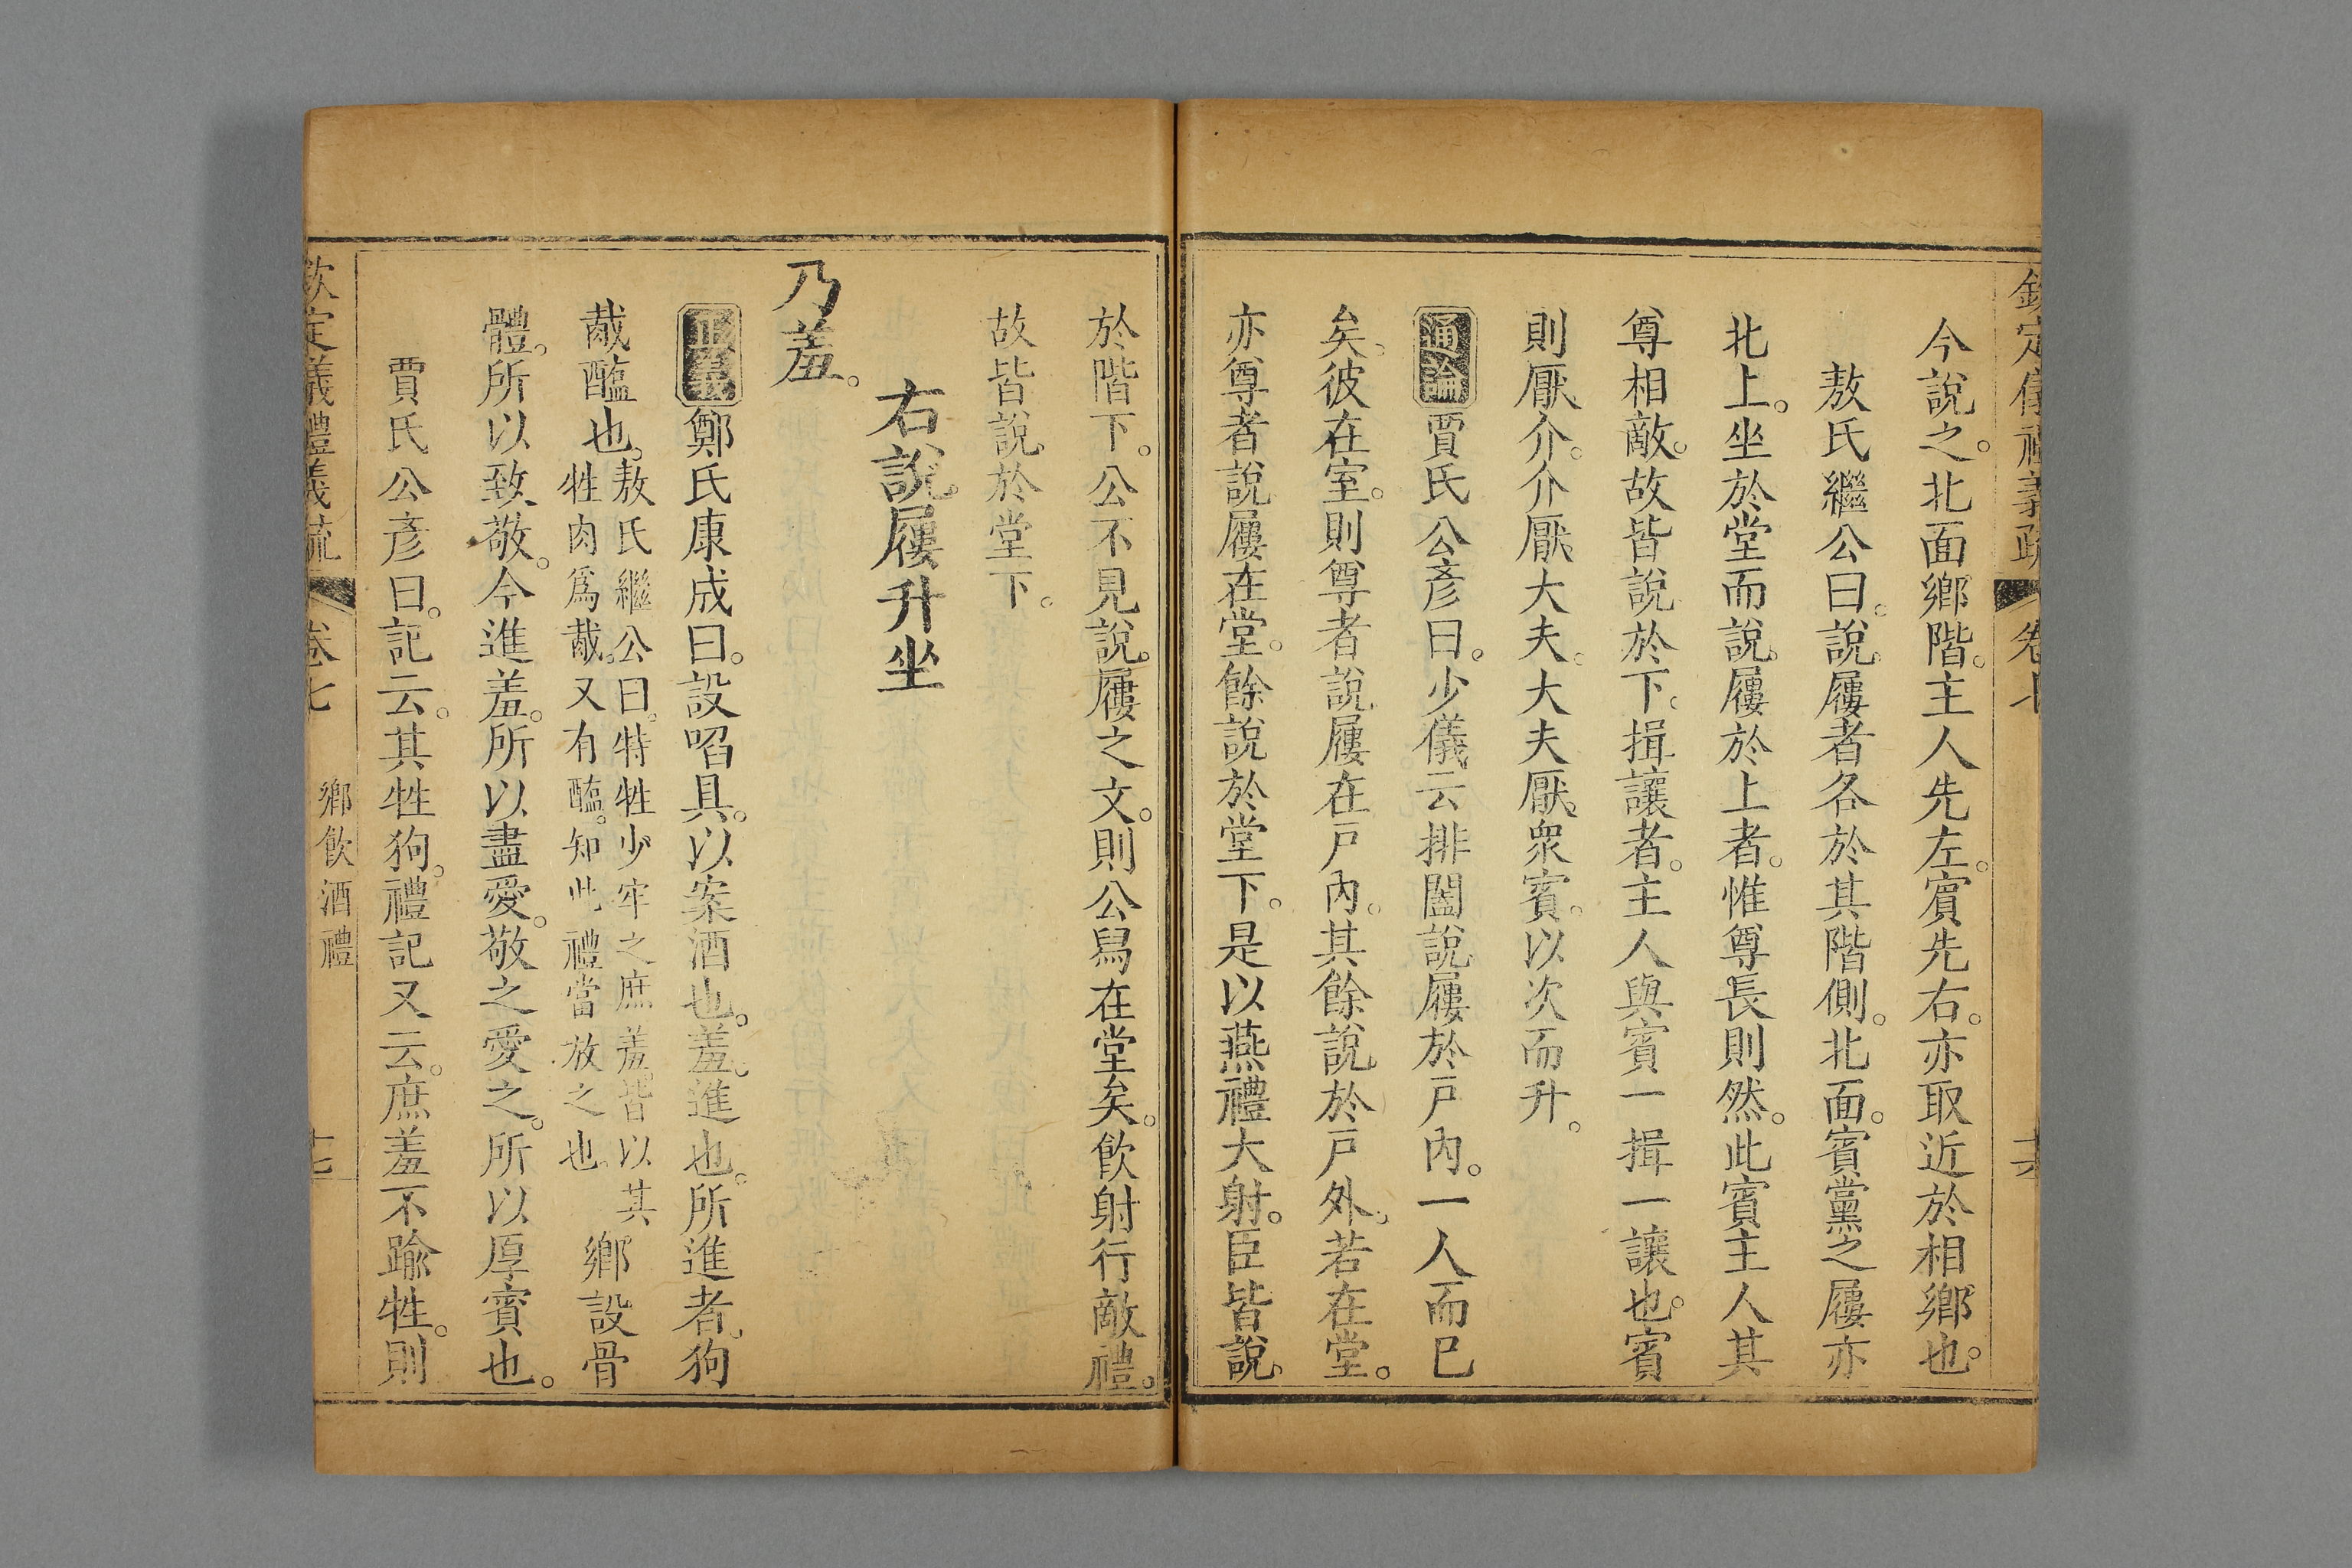 欽定儀禮義疏 卷七
今說之。北面鄉階。主人先左。賓先右。亦取近於相鄉也。
敖氏繼公曰。說屨者各於其階側。北面。賓黨之屨亦
北上。坐於堂而說屨於上者。惟尊長則然。此賓主人其
尊相敵。故皆說於下。揖讓者。主人與賓一揖一讓也。賓
則厭介。介厭大夫。大夫厭衆賓。以次而升。
通論 賈氏公彥曰。少儀云排闔說屨於戶內。一人而已
矣。彼在室。則尊者說屨在戶內。其餘說於戶外。若在堂。
亦尊者說屨在堂。餘說於堂下。是以燕禮大射。臣皆說
於階下。公不見說屨之文。則公舄在堂矣。飲射行敵禮。
故皆說於堂下。
右說屨升坐
乃羞。
正義 鄭氏康成曰。設啗具。以案酒也。羞。進也。所進者。狗
胾醢也。敖氏繼公曰。特牲少牢之庶羞。皆以其
牲肉爲胾。又有醢。知此禮當放之也。鄉設骨
體。所以致敬。今進羞。所以盡愛。敬之愛之。所以厚賓也。
賈氏公彥曰。記云。其牲狗。禮記又云。庶羞不踰牲。則
欽定儀禮義疏 卷七 鄉飲酒禮 十七